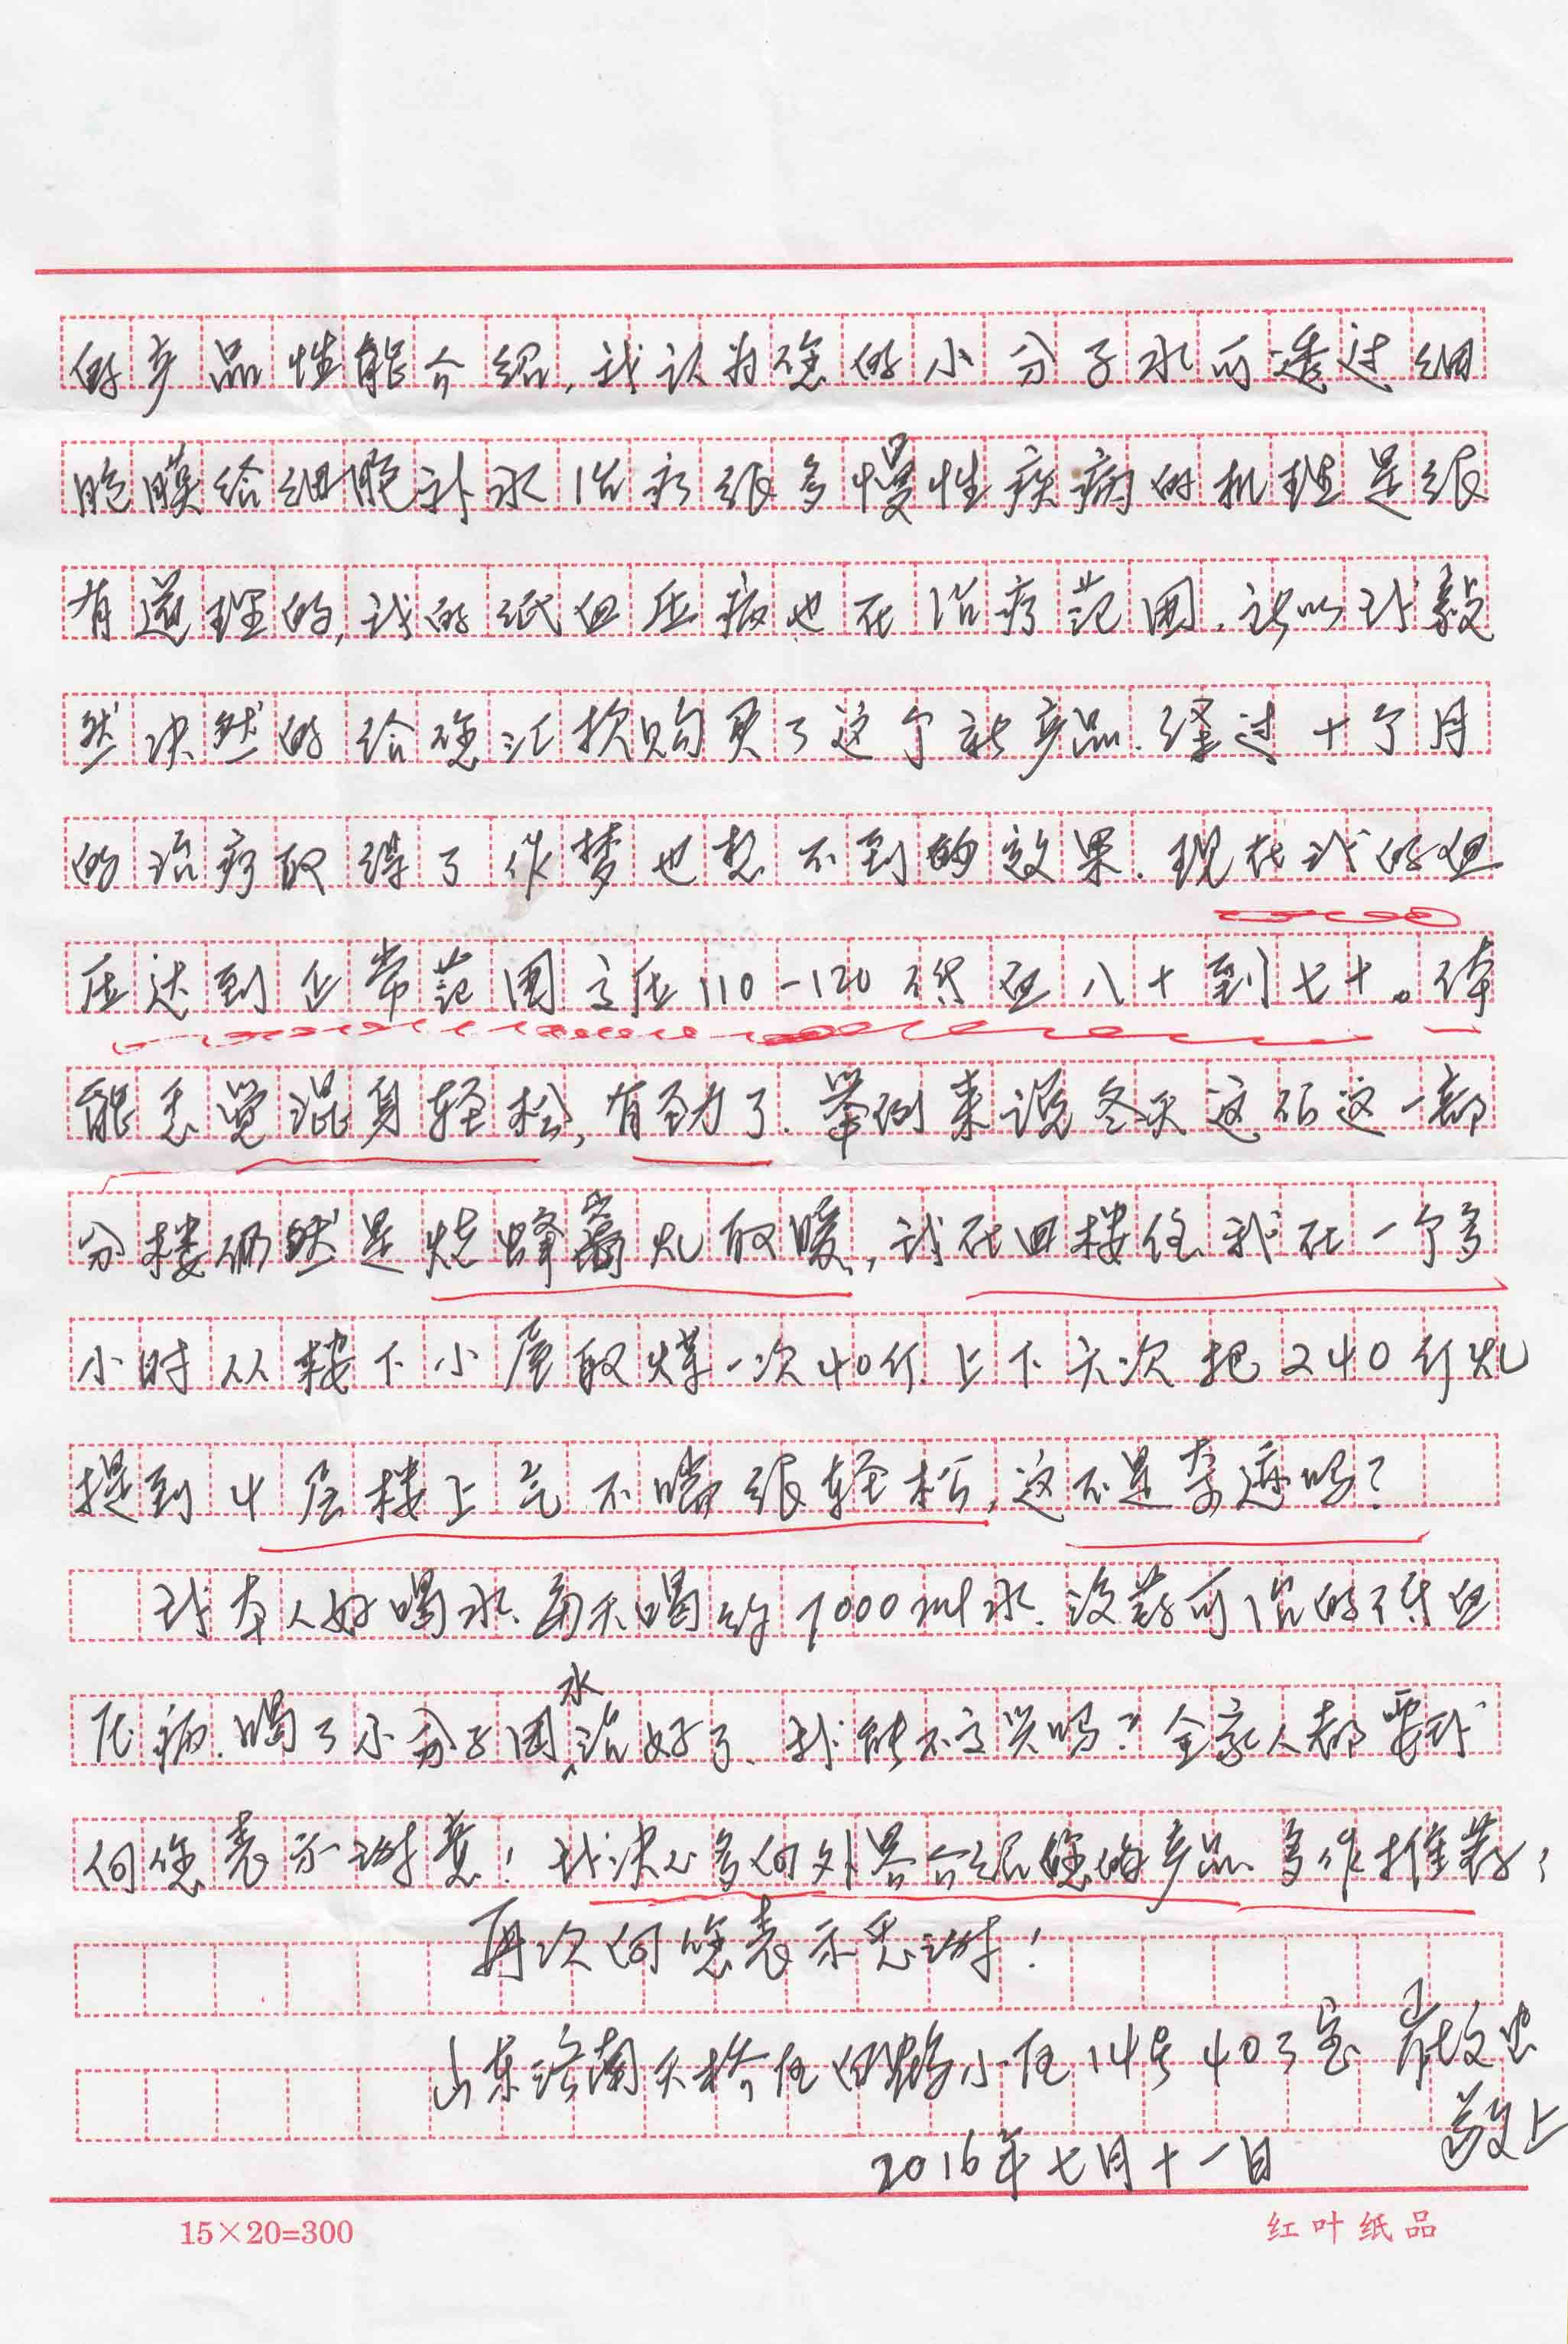 的产品性能介绍,我认为您的小分子水可透过细
胞膜给细胞补水治疗很多慢性疾病的机理是很
有道理的,我的纸血压病也在治疗范围.所以我毅
然决然的给您汇款购买了这个新产品.经过十个月
的治疗取得了作梦也想不到的效果.现在我的血
压达到正常范围高压110-120低血八十到七十。体
能感觉混身轻松,有劲了.举例来说冬天这后这一部
分楼仍然是烧蜂窝炉取暖,我在四楼住.我在一个多
小时从楼下小屋取煤一次40斤.上下六次把240斤炉
提到4层楼上气不喘很轻松,这不是奇迹吗?
我本人好喝水.每天喝约1000ml水.没药可治的低血
压病.喝了小分子团水治好了、我能不高兴吗?全家人都要我
向您表示谢意!我决心多向外界介绍您的产品.多作推荐;
再次向您表示感谢!
山东济南天桥区小区14号403室
敬上
2016年七月十一日
15×20=300
红叶纸品